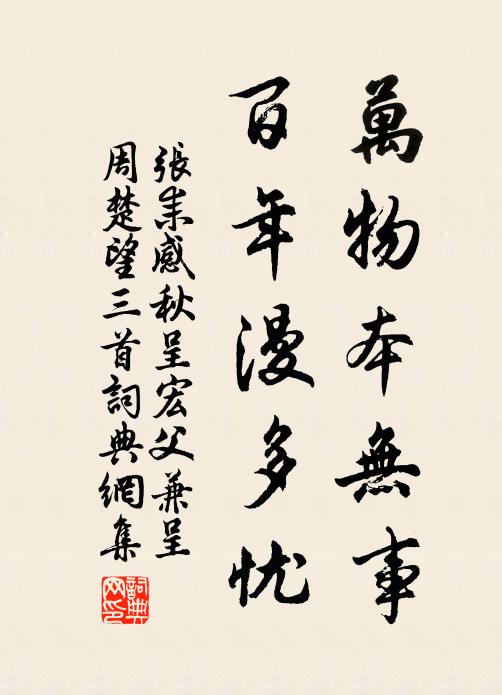 萬物本無事
百年漫多忧
張耒感秋呈宏父兼呈
周楚望三首詞典網集
詞典网印